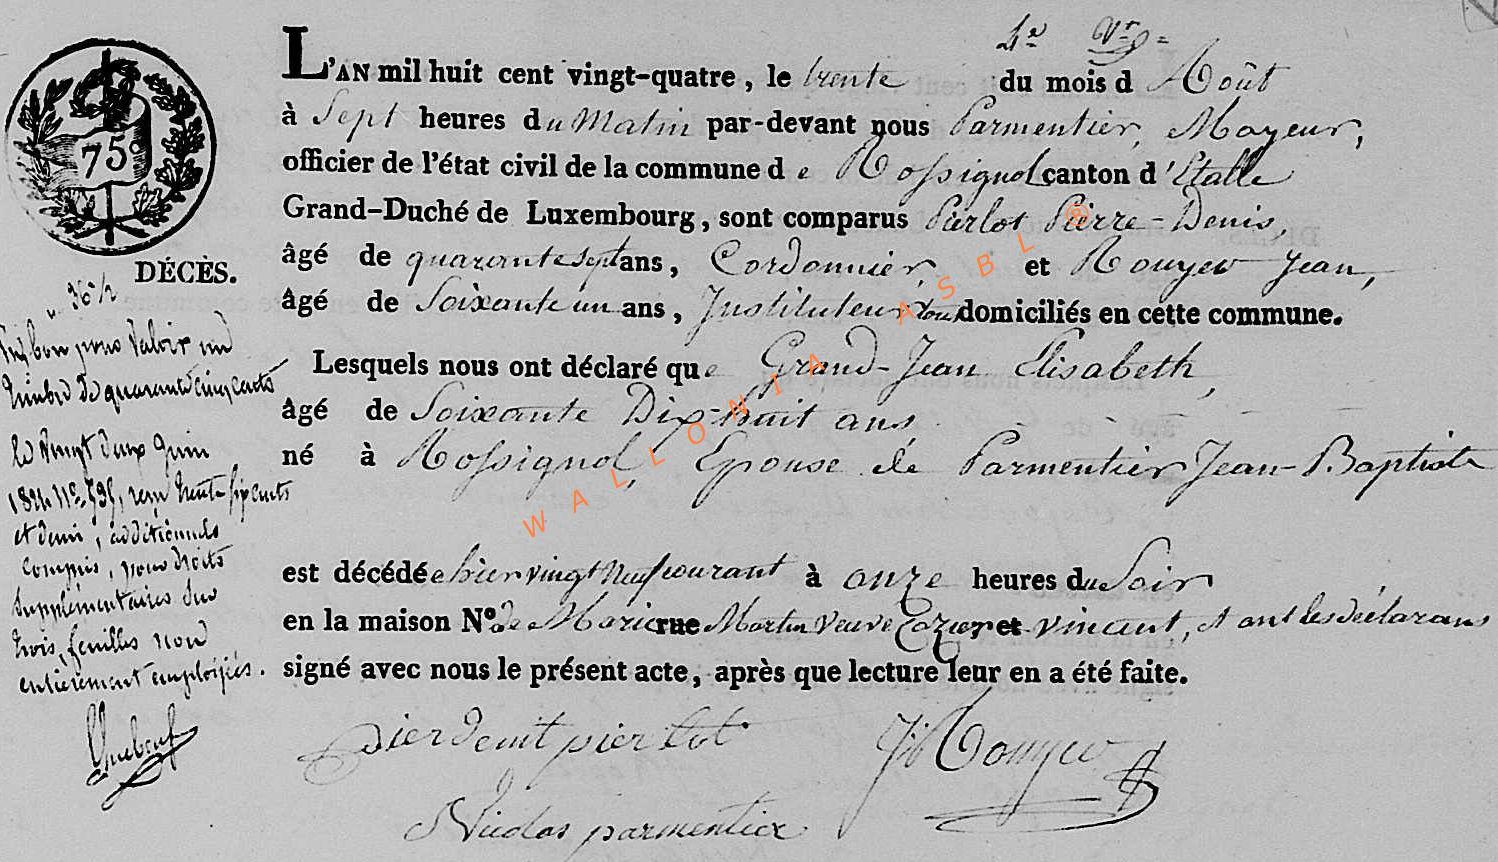 L'AN mil huit cent vingt-quatre, le trente du mois d Août
à Sept heures du Matin par-devant nous Parmentier, Mayeur,
officier de l'état civil de la commune de Rossignol canton d'Etalle
Grand-Duché de Luxembourg, sont comparus Pierlot Pierre-Denis,
âgé de quarante sept ans, Cordonnier et Rouyer Jean,
âgé de Soixante un ans, Instituteur tous domiciliés en cette commune.
Lesquels nous ont déclaré que Grand-Jean Elisabeth,
âgé de Soixante Dix-huit ans
né à Rossignol, Epouse de Parmentier Jean-Baptiste
est décédée hier vingt Neuf courant à onze heures du Soir
en la maison No. de Marie rue Martin Veuve et vincent, et ont les déclarans
signé avec nous le présent acte, après que lecture leur en a été faite.
pierdenit pierlot
J Rouyer
Nicolas parmentier
75c
DÉCÈS.
bon pour Valoir un
timbre de quarante cinq cents
le Vingt deux Juin
1824 No. 735, reçu trente six cents
et demi, additionnels
compris, pour droits
Supplémentaires sur
trois feuilles non
entièrement employées.
WALLONIA ASBL ®